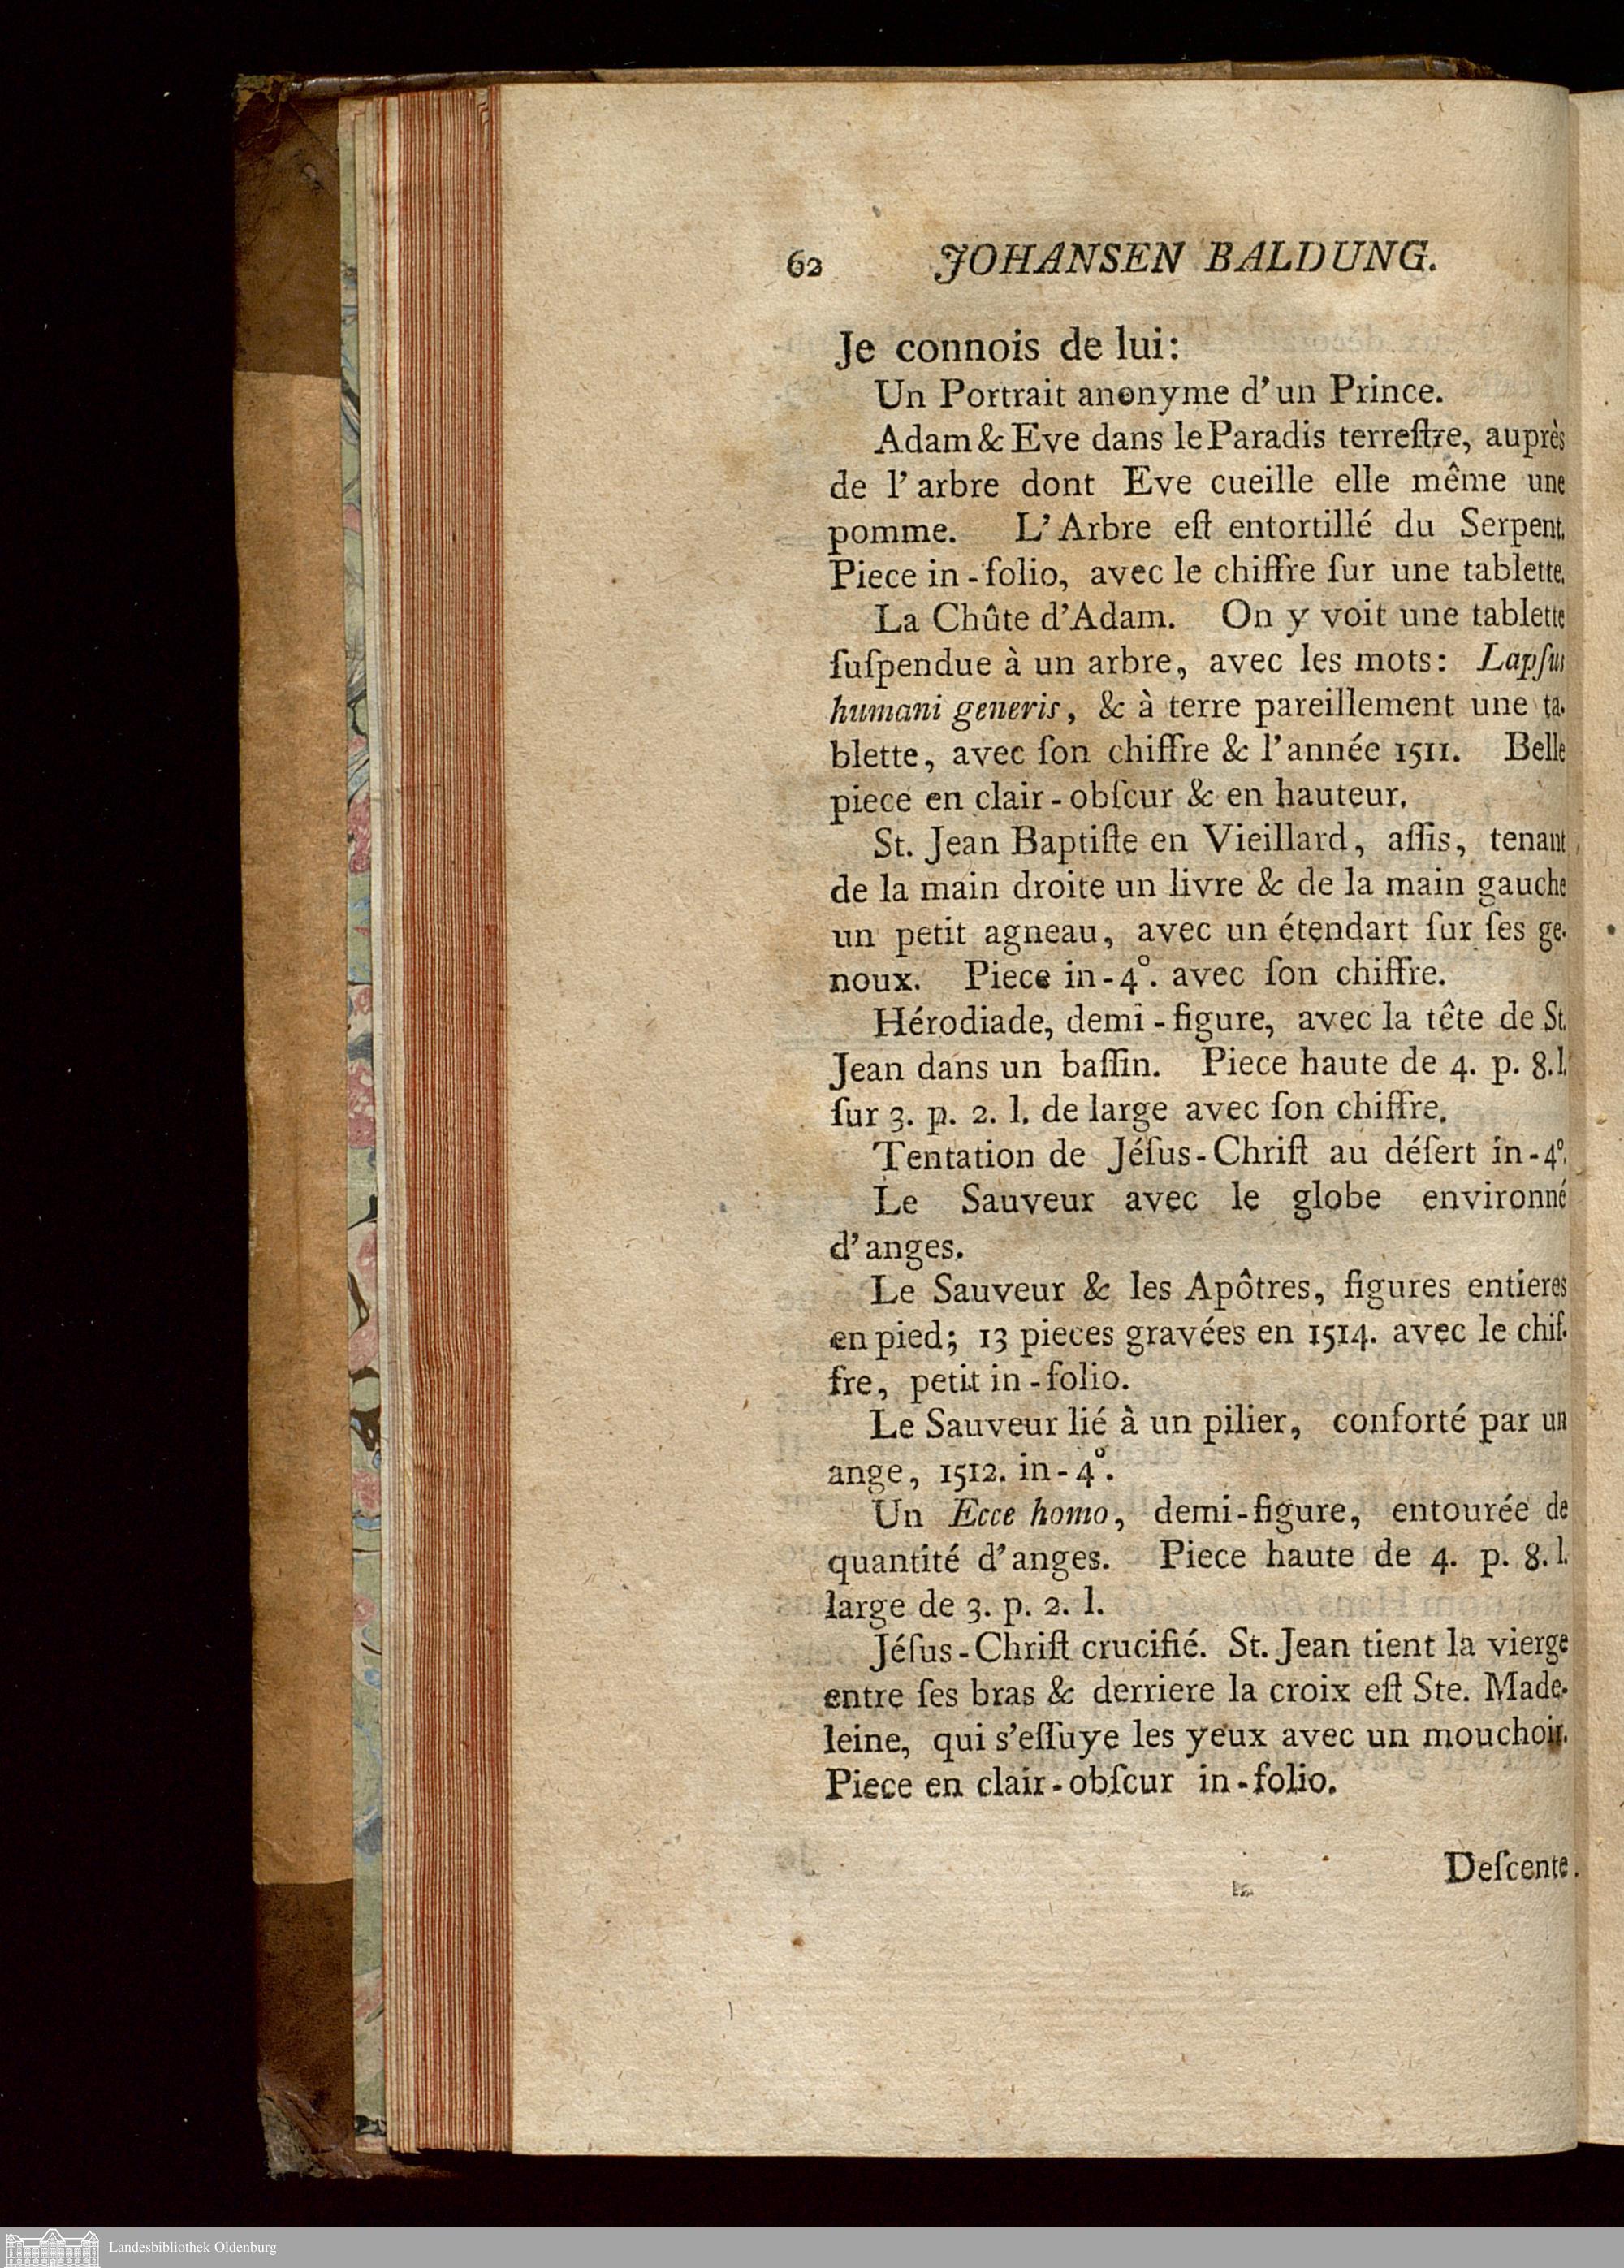 62 JOHANSEN BALDUNG.
Je connois de lui:
Un Portrait anonyme d'un Prince.
Adam & Eve dans le Paradis terreſtre, auprès
de l'arbre dont Eve cueille elle même une
pomme. L'Arbre eſt entortillé du Serpent.
Piece in-folio, avec le chiffre ſur une tablette.
La Chûte d'Adam. On y voit une tablette
ſuſpendue à un arbre, avec les mots: Lapſus
humani generis, & à terre pareillement une ta-
blette, avec ſon chiffre & l'année 1511. Belle
piece en clair-obſcur & en hauteur.
St. Jean Baptiſte en Vieillard, aſſis, tenant
de la main droite un livre & de la main gauche
un petit agneau, avec un étendart ſur ſes ge-
noux. Piece in-4°. avec ſon chiffre.
Hérodiade, demi-figure, avec la tête de St.
Jean dans un baſſin. Piece haute de 4. p. 8. l.
ſur 3. p. 2. l. de large avec ſon chiffre.
Tentation de Jéſus-Chriſt au déſert in-4°.
Le Sauveur avec le globe environné
d'anges.
Le Sauveur & les Apôtres, figures entieres
en pied; 13 pieces gravées en 1514. avec le chif-
fre, petit in-folio.
Le Sauveur lié à un pilier, conforté par un
ange, 1512. in-4°.
Un Ecce homo, demi-figure, entourée de
quantité d'anges. Piece haute de 4. p. 8. l.
large de 3. p. 2. l.
Jéſus-Chriſt crucifié. St. Jean tient la vierge
entre ſes bras & derriere la croix eſt Ste. Made-
leine, qui s'eſſuye les yeux avec un mouchoir.
Piece en clair-obſcur in-folio.
Deſcente
Landesbibliothek Oldenburg